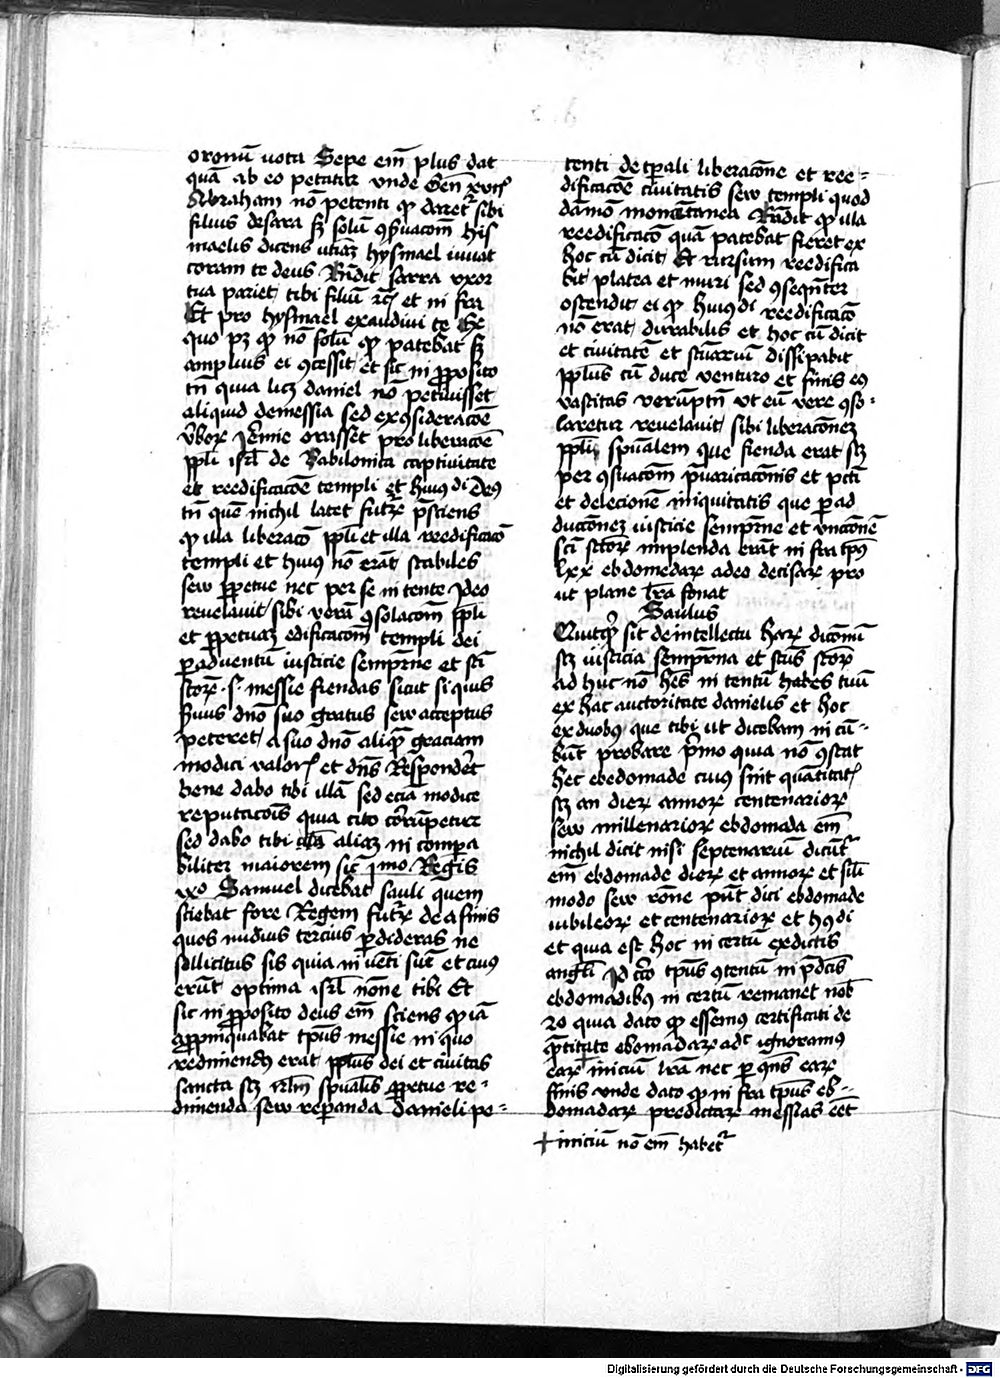 oronū vota Sepe em̄ plus dat
quā ab eo petatur vnde Gen̄ xvij
Abraham nō petenti qꝫ daret᷑ sibi
filius de sara sꝫ solū ꝯseruacōm his
maelis dicens vtinaꝫ hysmael viuat
coram te deus Rn̄dit sarra vxor
tua pariet tibi filiū ⁊c̄ et in fra
Et pro hysmael exaudiui te Ex
quo pꝫ qꝫ nō solū qꝫ patebat sꝫ
amplius ei ꝯcessit et sic in ꝓposito
tn̄ quia licꝫ daniel nō petiuisset
aliquid de messia sed ex ꝯsideracōe
v̄boꝝ Jermie orasset pro liberacōe
ppl̄i isrl̄ de Babilonica captiuitate
et reedificacōe templi et huiꝰdi Deꝰ
tn̄ quē nichil latet futuꝝ p̄sciens
qꝫ illa liberacō ppl̄i et illa reedificacō
templi et huiꝰ nō erāt stabiles
seu ꝑpetue nec per se intente Ideo
reuelauit sibi verā ꝯsolacōm ppl̄i
et ꝑpetuaꝫ edificacōm templi dei
ꝑ aduentū iusticie sempit̄ne et sc̄i
sc̄oꝝ .s. messie fiendas sicut si quis
s̄uus dn̄o suo gratus seu acceptus
peteret a suo dn̄o aliquā graciam
modici valoris et dn̄s Responderet
bene dabo tibi illā sed ecia modice
reputacōis quia cito corrūpetur
sed dabo tibi aliaꝫ in compa
biliter maiorem sic̄ primo Regis
ixo Samuel dicebat sauli quem
sciebat fore Regem futuꝝ de asinis
quos nudius tercius ꝑdideras ne
sollicitus sis quia inuēti sūt et cuiꝰ
erūt optima isrl̄ none tibi Et
sic in ꝓposito deus em̄ sciens qꝫ iā
appropinquabat tp̄us messie in quo
redimendꝰ erat ppl̄us dei et ciuitas
sancta sꝫ irl̄m spūalis ꝑpetue re-
dimenda seu reparanda Danieli pe-
tenti de tp̄ali liberacōne et ree-
dificacōe ciuitatis seu templi quod
dāmō momentanea Rn̄dit qꝫ illa
reedificacō quā patebat fieret ex
hoc cū dicit Et rursum reedifica
bit᷑ platea et muri sed ꝯseqn̄ter
ostendit ei qꝫ huiꝰdi reedificacō
nō erat durabilis et hoc cū dicit
et ciuitatē et sc̄uariū dissipabit
ppl̄us cū duce venturo et finis eiꝰ
vastitas verūptn̄ vt eū vere ꝯso-
laretur reuelauit sibi liberacōneꝫ
ppl̄i spūalem que fienda erat sꝫ
per ꝯsūacōm p̄uaricacōnis et pcc̄i
et delecionē iniquitatis que ꝑ ad
ducōneꝫ iusticie sempit̄ne et vnccōnē
sc̄i sc̄oꝝ implenda erāt in fra tp̄us
lxx ebdomadaꝝ adeo decisaꝝ pro
ut plane lr̄a sonat
Saulus
Quitqꝫ sit de intellectu haꝝ diccōnū
sꝫ iusticia sempit̄na et sc̄us sc̄oꝝ
ad huc nō hēs intentū habes tuū
ex hac auctoritate danielis et hoc
ex duobꝰ que tibi ut dicebam incū-
būt probare primo quia nō ꝯstat
hec ebdomade cuiꝰ sint quātitatis
sꝫ an dieꝝ annoꝝ centenarioꝝ
seu millenarioꝝ ebdomada em̄
nichil dicit nisi septenariū dicūt᷑
em̄ ebdomade dieꝝ et annoꝝ et sil̄i
modo seu rōne pn̄t dici ebdomade
iubileoꝝ et centenarioꝝ et hꝰdi
et quia est hoc in certū ex dictis
angl̄i Id circo tp̄us ꝯtentū in p̄dc̄is
ebdomadibꝰ in certū remanet nob̄
2o quia dato qꝫ essemꝰ certificati de
quātitate ebdomadaꝝ adc̄ ignoramꝰ
eaꝝ iniciū lr̄a nec ꝑ qn̄s eaꝝ
finis vnde dato qꝫ in fra tp̄us eb-
domadaꝝ predictaꝝ messias eēt
+ iniciū nō em̄ habet᷑
Digitalisierung gefördert durch die Deutsche Forschungsgemeinschaft - DFG